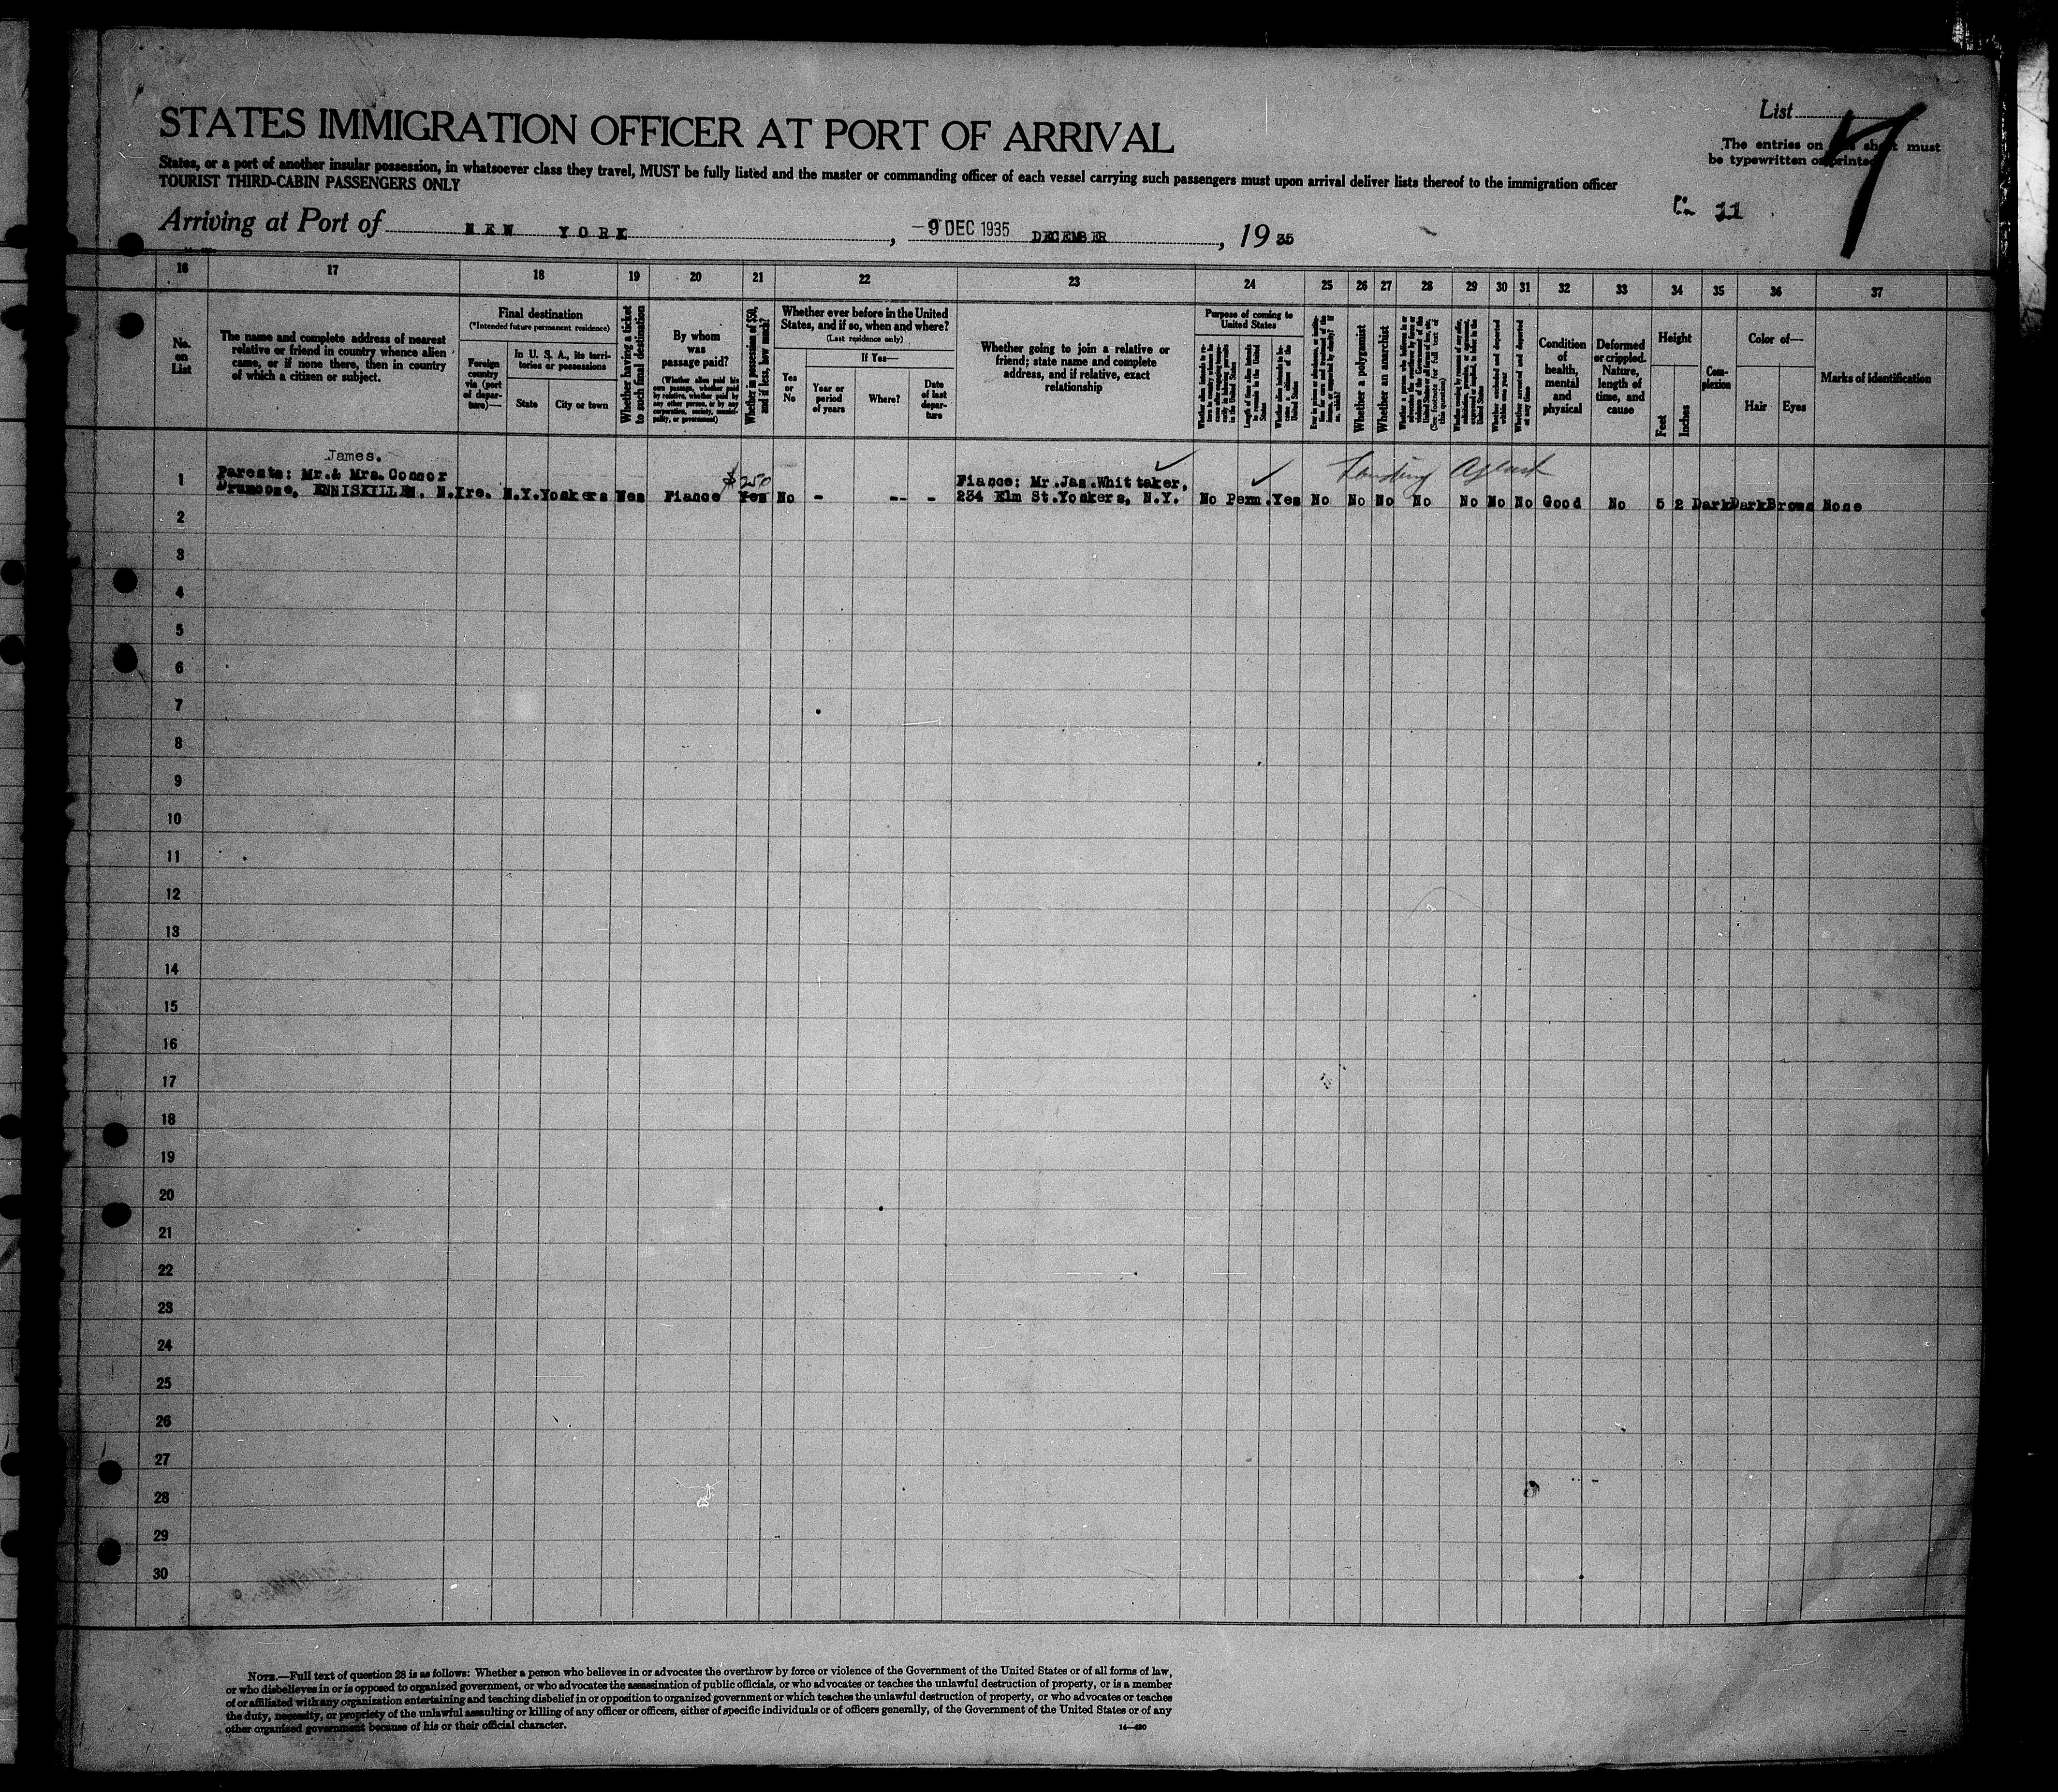 STATES IMMIGRATION OFFICER AT PORT OF ARRIVAL
List
7
The entries on this sheet must
be typewritten or printed
States, or a port of another insular possession, in whatsoever class they travel, MUST be fully listed and the master or commanding officer of each vessel carrying such passengers must upon arrival deliver lists thereof to the immigration officer
TOURIST THIRD-CABIN PASSENGERS ONLY
11
Arriving at Port of NEW YORK, -9 DEC 1935 DECEMBER, 19 35
16 17 18 19 20 21 22 23 24 25 26 27 28 29 30 31 32 33 34 35 36 37
No. on List
The name and complete address of nearest
relative or friend in country whence alien
came, or if none there, then in country
of which a citizen or subject.
Final destination
(*Intended future permanent residence)
Foreign country via (port of departure)—
In U. S. A., its territories or possessions
State
City or town
Whether having a ticket to such final destination
By whom was passage paid?
(Whether alien paid his own passage, whether paid by relative, whether paid by any other person, or by any corporation, society, municipality, or government)
Whether in possession of $50, and if less, how much?
Whether ever before in the United States, and if so, when and where?
(Last residence only)
Yes or No
If Yes—
Year or period of years
Where?
Date of last departure
Whether going to join a relative or
friend; state name and complete
address, and if relative, exact
relationship
Purpose of coming to United States
Length of time alien intends to remain in the United States
Whether alien intends to become a citizen of the United States
Whether a polygamist
Whether an anarchist
(See footnote for full text of this question)
Whether arrested and deported at any time
Condition of health, mental and physical
Deformed or crippled. Nature, length of time, and cause
Height
Feet
Inches
Complexion
Color of—
Hair
Eyes
Marks of identification
James.
1 Parents: Mr.& Mrs. Connor $250 Fiance: Mr.Jas.Whittaker, Landing
ENNISKILLEN. N.Ire. N.Y. Yonkers Yes Fiance Yes No - -- - 234 Elm St.Yonkers, N.Y. No Perm. Yes No No No No No No No Good No 5 2 Dark Dark Brown None
2
3
4
5
6
7
8
9
10
11
12
13
14
15
16
17
18
19
20
21
22
23
24
25
26
27
28
29
30
NOTE.—Full text of question 28 is as follows: Whether a person who believes in or advocates the overthrow by force or violence of the Government of the United States or of all forms of law,
or who disbelieves in or is opposed to organized government, or who advocates the assassination of public officials, or who advocates or teaches the unlawful destruction of property, or is a member
of or affiliated with any organization entertaining and teaching disbelief in or opposition to organized government or which teaches the unlawful destruction of property, or who advocates or teaches
the duty, necessity, or propriety of the unlawful assaulting or killing of any officer or officers, either of specific individuals or of officers generally, of the Government of the United States or of any
other organized government because of his or their official character.
14—430